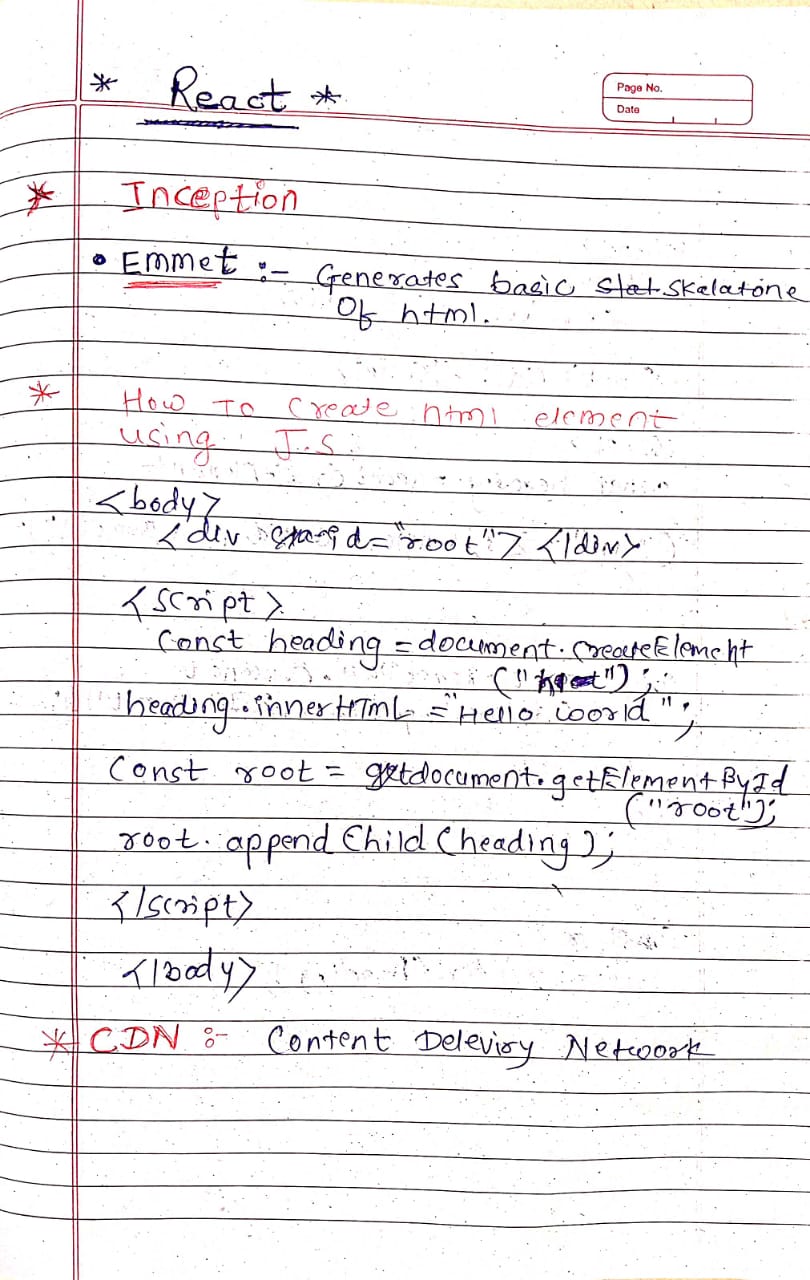 * React *
Page No.
Date
* Inception
• Emmet :- Generates basic skelatone
Of html.
* How To Create html element
using J.S.
<body>
<div id="root"> </div>
<script>
Const heading = document.createElement
("");
heading.innerHTML = "Hello world";
Const root = document.getElementById
("root");
root.appendChild(heading);
</script>
</body>
* CDN :- Content Deleviry Network